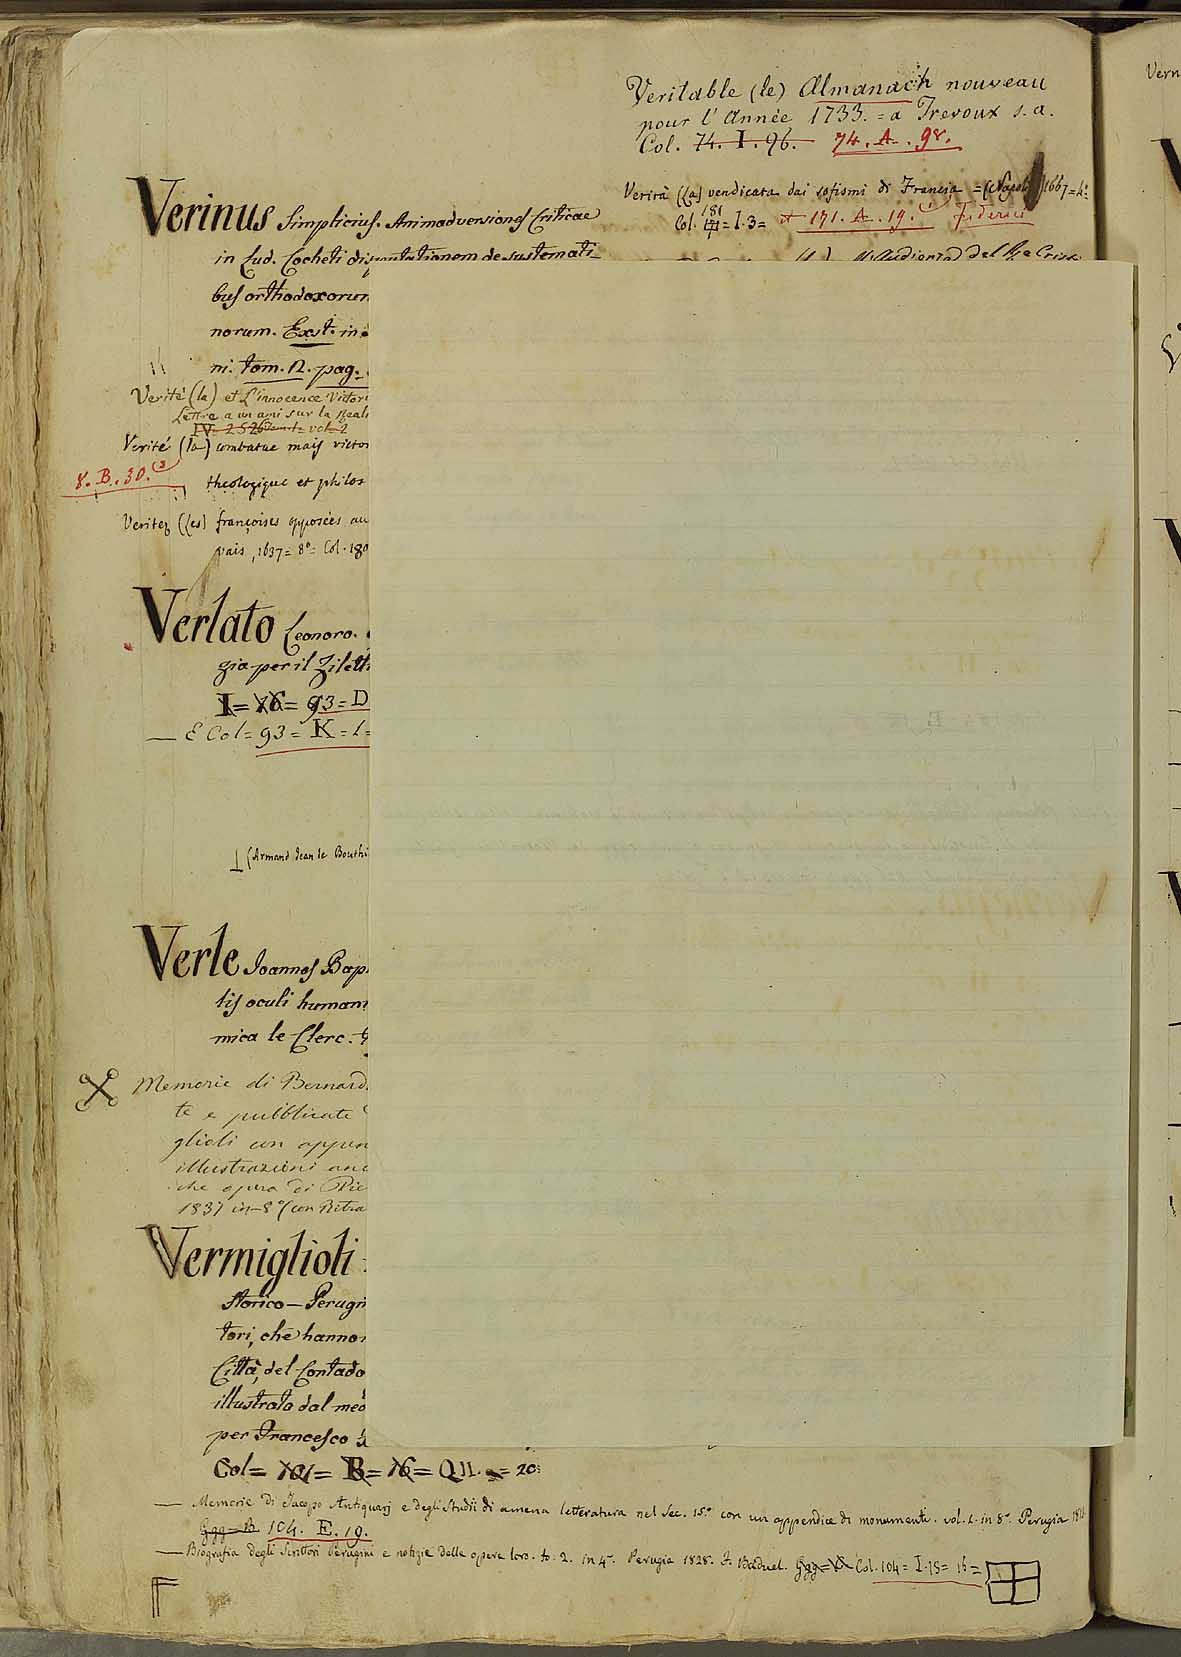 Veritable (le) Almanach nouveau
pour l'Année 1733. = a Trevoux s.a.
Col. 74. I. 96. 74. A. 98.
Verità (la) vendicata dai sofismi di Francia = (Napoli) 1667 = 4:
Col. 181 = I. 3 = 171. A. 19. Federici
Verinus Simplicius. Animadversiones Criticae
in Lud. Cocheti disputationem de sustemati
bus orthodoxorum
norum. Exst. in
ni: tom. 12. pag.
Verité (la) et L'innocence Victori
Lettre a un ami sur la Reali
IV = 2526 vol. 2
Verité (la) combatue mais victor
8. B. 30.
theologique et philos
Veritez (les) françoises opposées au
vais, 1637 = 8º = Col. 180
Verlato Leonoro.
gia per il Ziletti
I = 16 = 93 = D
— E Col = 93 = K = 1 =
(Armand Jean le Bouthi
Verle Joannes Bap
tis oculi humani
mica le Clerc.
Memorie di Bernard
te e pubblicate
glioli con appen
illustrazioni
che opera di
1837 in-8º (con Ritra
Vermiglioli
Storico-Perugi
tori, che hanno
Città, del Contado
illustrato dal med
per Francesco
Col = 101 = B = 16 = = 20:
— Memorie di Jacopo Antiquarj e degli Studii di amena letteratura nel Sec. 15.º con un appendice di monumenti. vol. 1. in 8º. Perugia
Ggg = B 104. E. 19.
— Biografia degli Scrittori Perugini e notizie delle opere loro. to. 2. in 4º. Perugia 1828. Baduel. Ggg = Col. 104 = I. 15 = 16 =
Vern